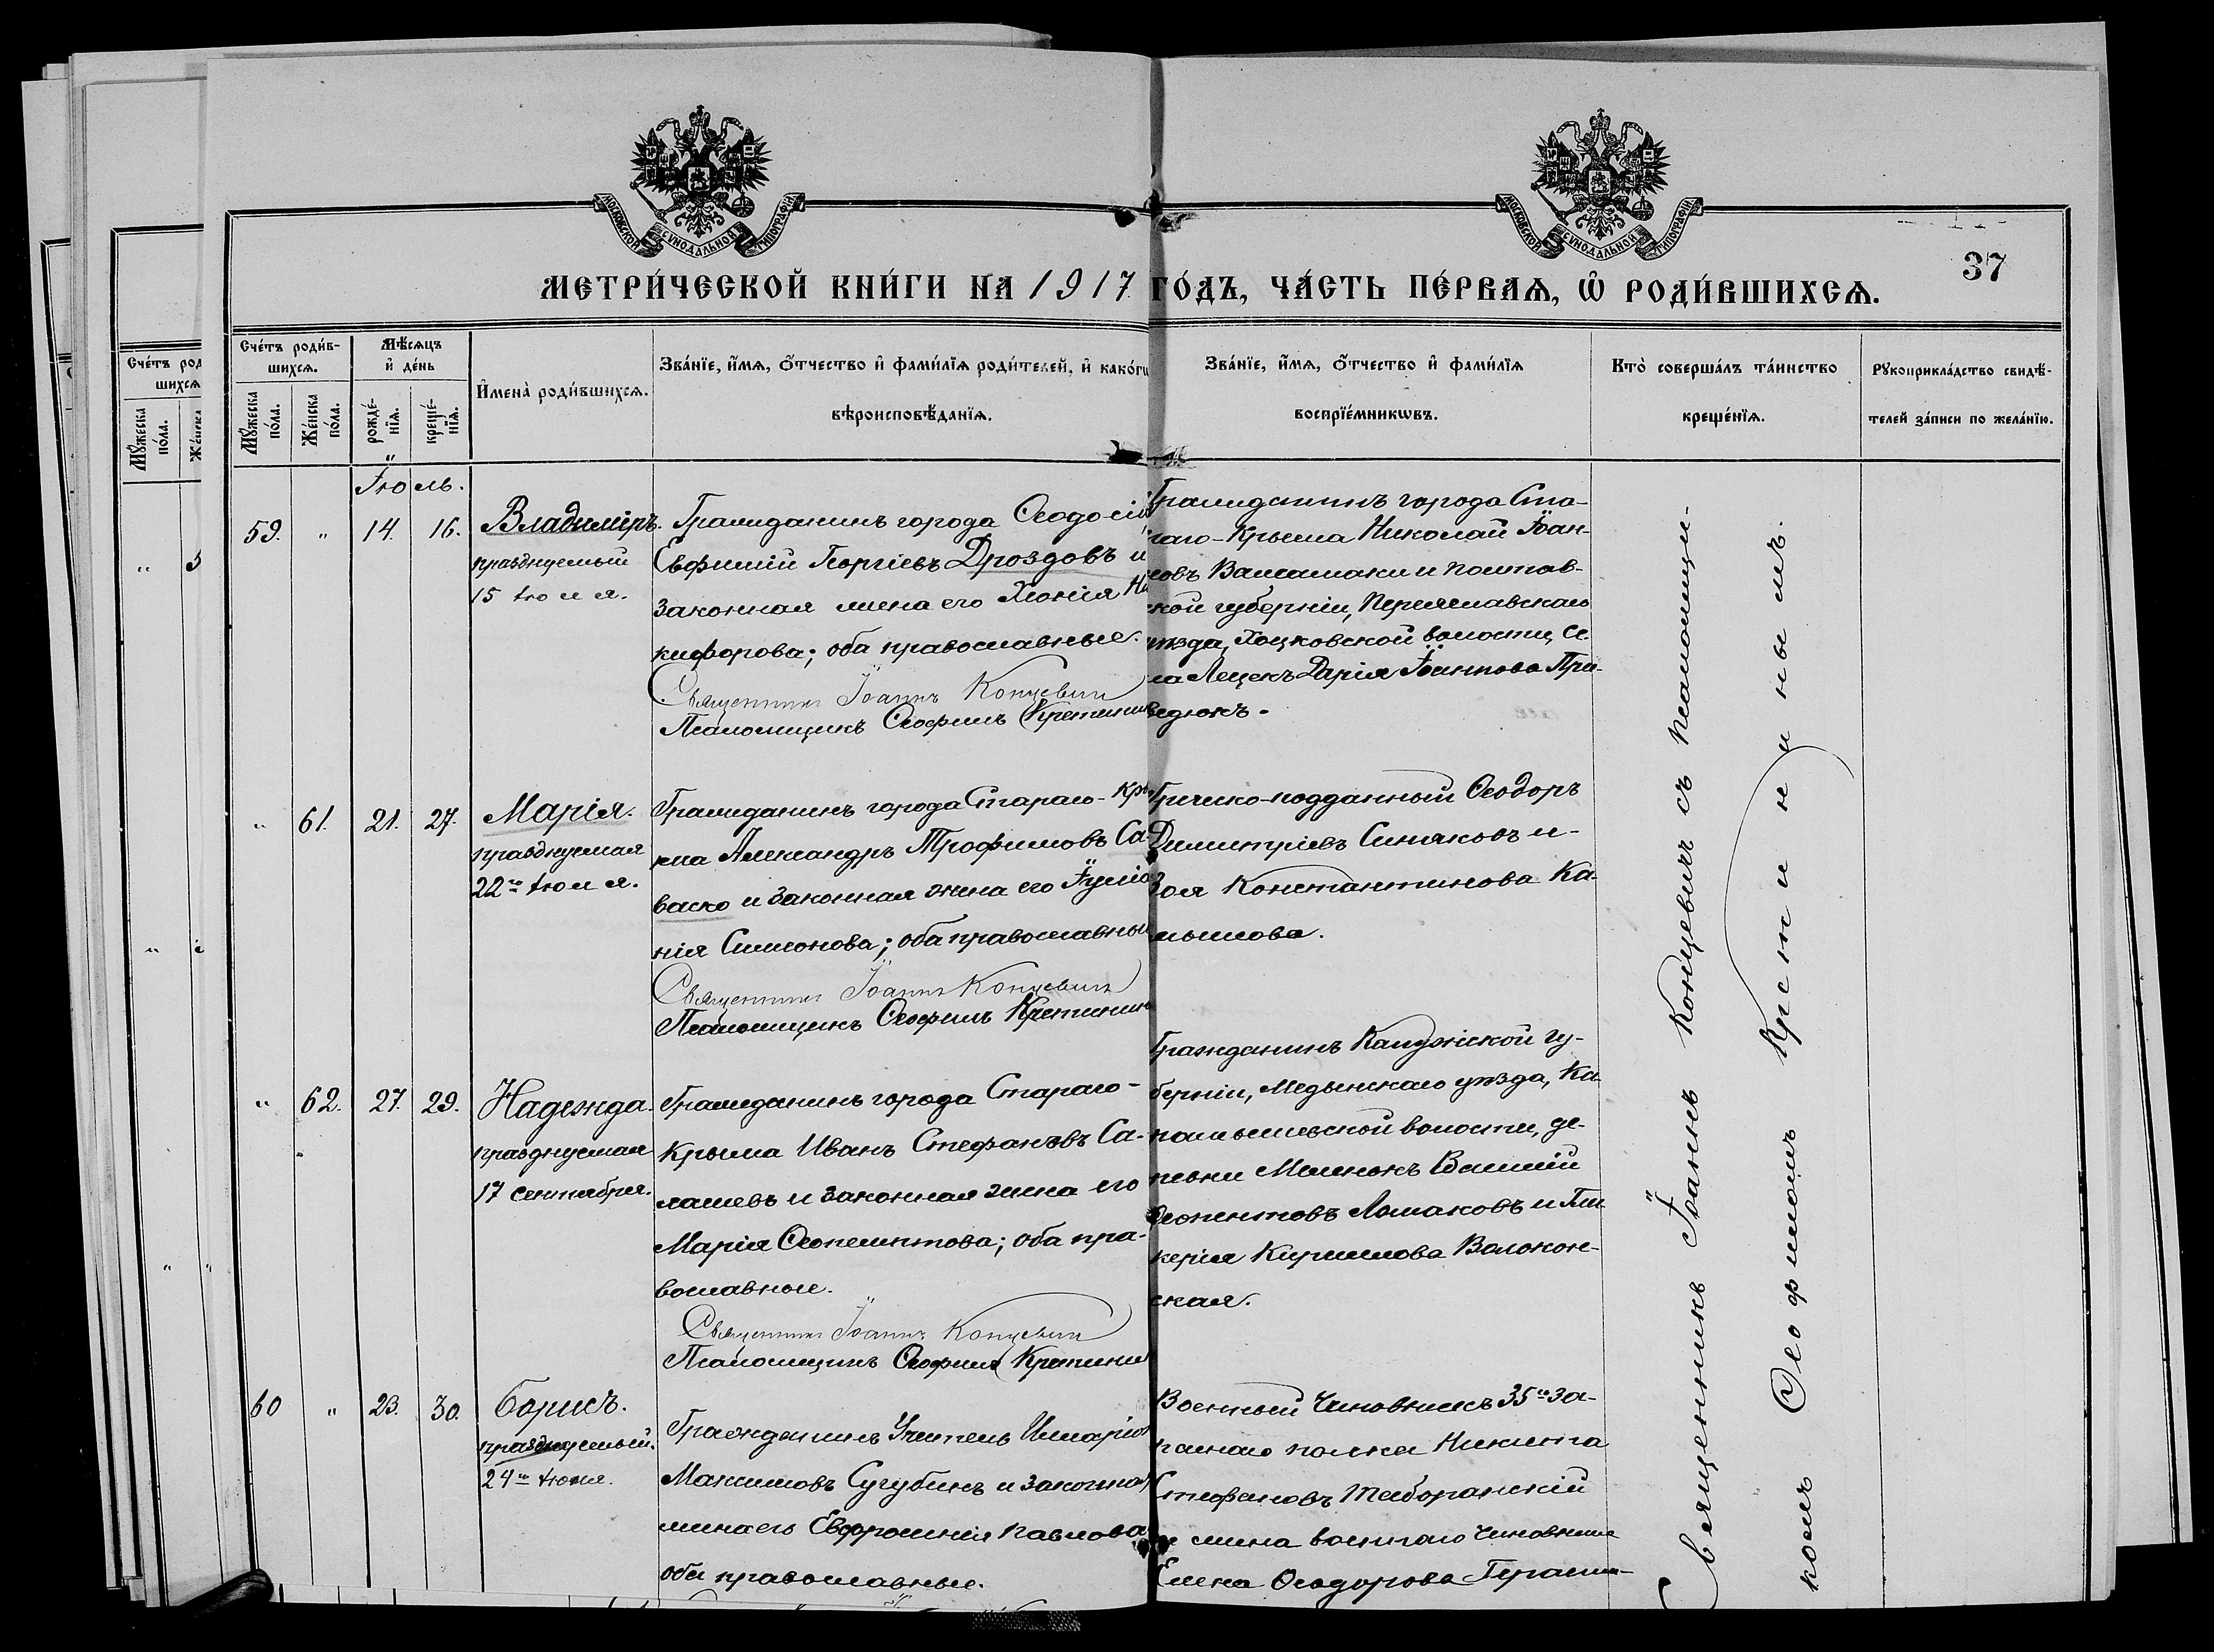 МОСКОВСКОЙ СѴНОДАЛЬНОЙ ТИПОГРАФІИ
МОСКОВСКОЙ СѴНОДАЛЬНОЙ ТИПОГРАФІИ
37
МЕТРИ́ЧЕСКОЙ КНИ́ГИ НА 1917 ГО́ДЪ, ЧА́СТЬ ПЕ́РВАѦ, Ѡ РОДИ́ВШИХСѦ.
Сче́тъ роди́в-
шихсѧ.
Мꙋ́жеска по́ла.
Же́нска по́ла.
Мѣ́сѧцъ
и҆ де́нь
рожде́-
нїѧ.
креще́-
нїѧ.
И҆мена̀ роди́вшихсѧ.
Зва́нїе, и҆́мѧ, ѻ҆́тчество и҆ фами́лїѧ роди́телей, и҆ како́гѡ
вѣроисповѣ́данїѧ.
Зва́нїе, и҆́мѧ, ѻ҆́тчество и҆ фами́лїѧ
воспрїе́мникѡвъ.
Кто̀ соверша́лъ та́инство
креще́нїѧ.
Рꙋкоприкла́дство свидѣ́-
телей за́писи по жела́нїю.
Іюль.
59. " 14. 16. Владиміръ.
празднуемый
15 іюля.
Гражданинъ города Ѳеодосіи
Евфимій Георгіевъ Дроздовъ и
законная жена его Хіонія Ни
кифорова; оба православные.
Священникъ Іоаннъ Концевичъ
Псаломщикъ Ѳеофилъ Кретининъ
Гражданинъ города Ста-
раго-Крыма Николай Іоан-
новъ и Полтав-
ской губерніи, Переяславскаго
уѣзда, Хоцковской волости, се-
ла Лецекъ Дарія Іоаннова При-
ведюкъ.
" 61. 21. 27. Марія.
празднуемая
22го іюля.
Гражданинъ города Стараго-Кры
ма Александръ Трофимовъ Са-
васко и законная жена его Іуліа
нія Симеонова; оба православные
Священникъ Іоаннъ Концевичъ
Псаломщикъ Ѳеофилъ Кретининъ
Греческо-подданный Ѳеодоръ
Димитріевъ Синяковъ и
Зоя Константинова Ка-
мышова.
" 62. 27. 29. Надежда.
празднуемая
17 сентября.
Гражданинъ города Стараго-
Крыма Иванъ Стефановъ Са-
лашевъ и законная жена его
Марія Ѳеопемптова; оба пра-
вославные.
Священникъ Іоаннъ Концевичъ
Псаломщикъ Ѳеофилъ Кретининъ
Гражданинъ Калужской гу-
берніи, Медынскаго уѣзда, Ка-
волости, де-
ревни Василій
Леонтовъ Ломаковъ и Гли-
керія Кириллова Волокон-
ская.
60 " 23. 30. Борисъ.
празднуемый.
24го іюля.
Гражданинъ Учитель Иларіонъ
Максимовъ Сугубинъ и законная
жена его Евфросинія Павлова
оба православные.
Военный Чиновникъ 35го За-
паснаго полка Никита
Стефановъ Таборанскій
и жена военнаго Чиновника
Елена Ѳеодорова Гераси-
Священникъ Іоаннъ Концевичъ съ псаломщи-
комъ Ѳеофиломъ Кретининымъ.